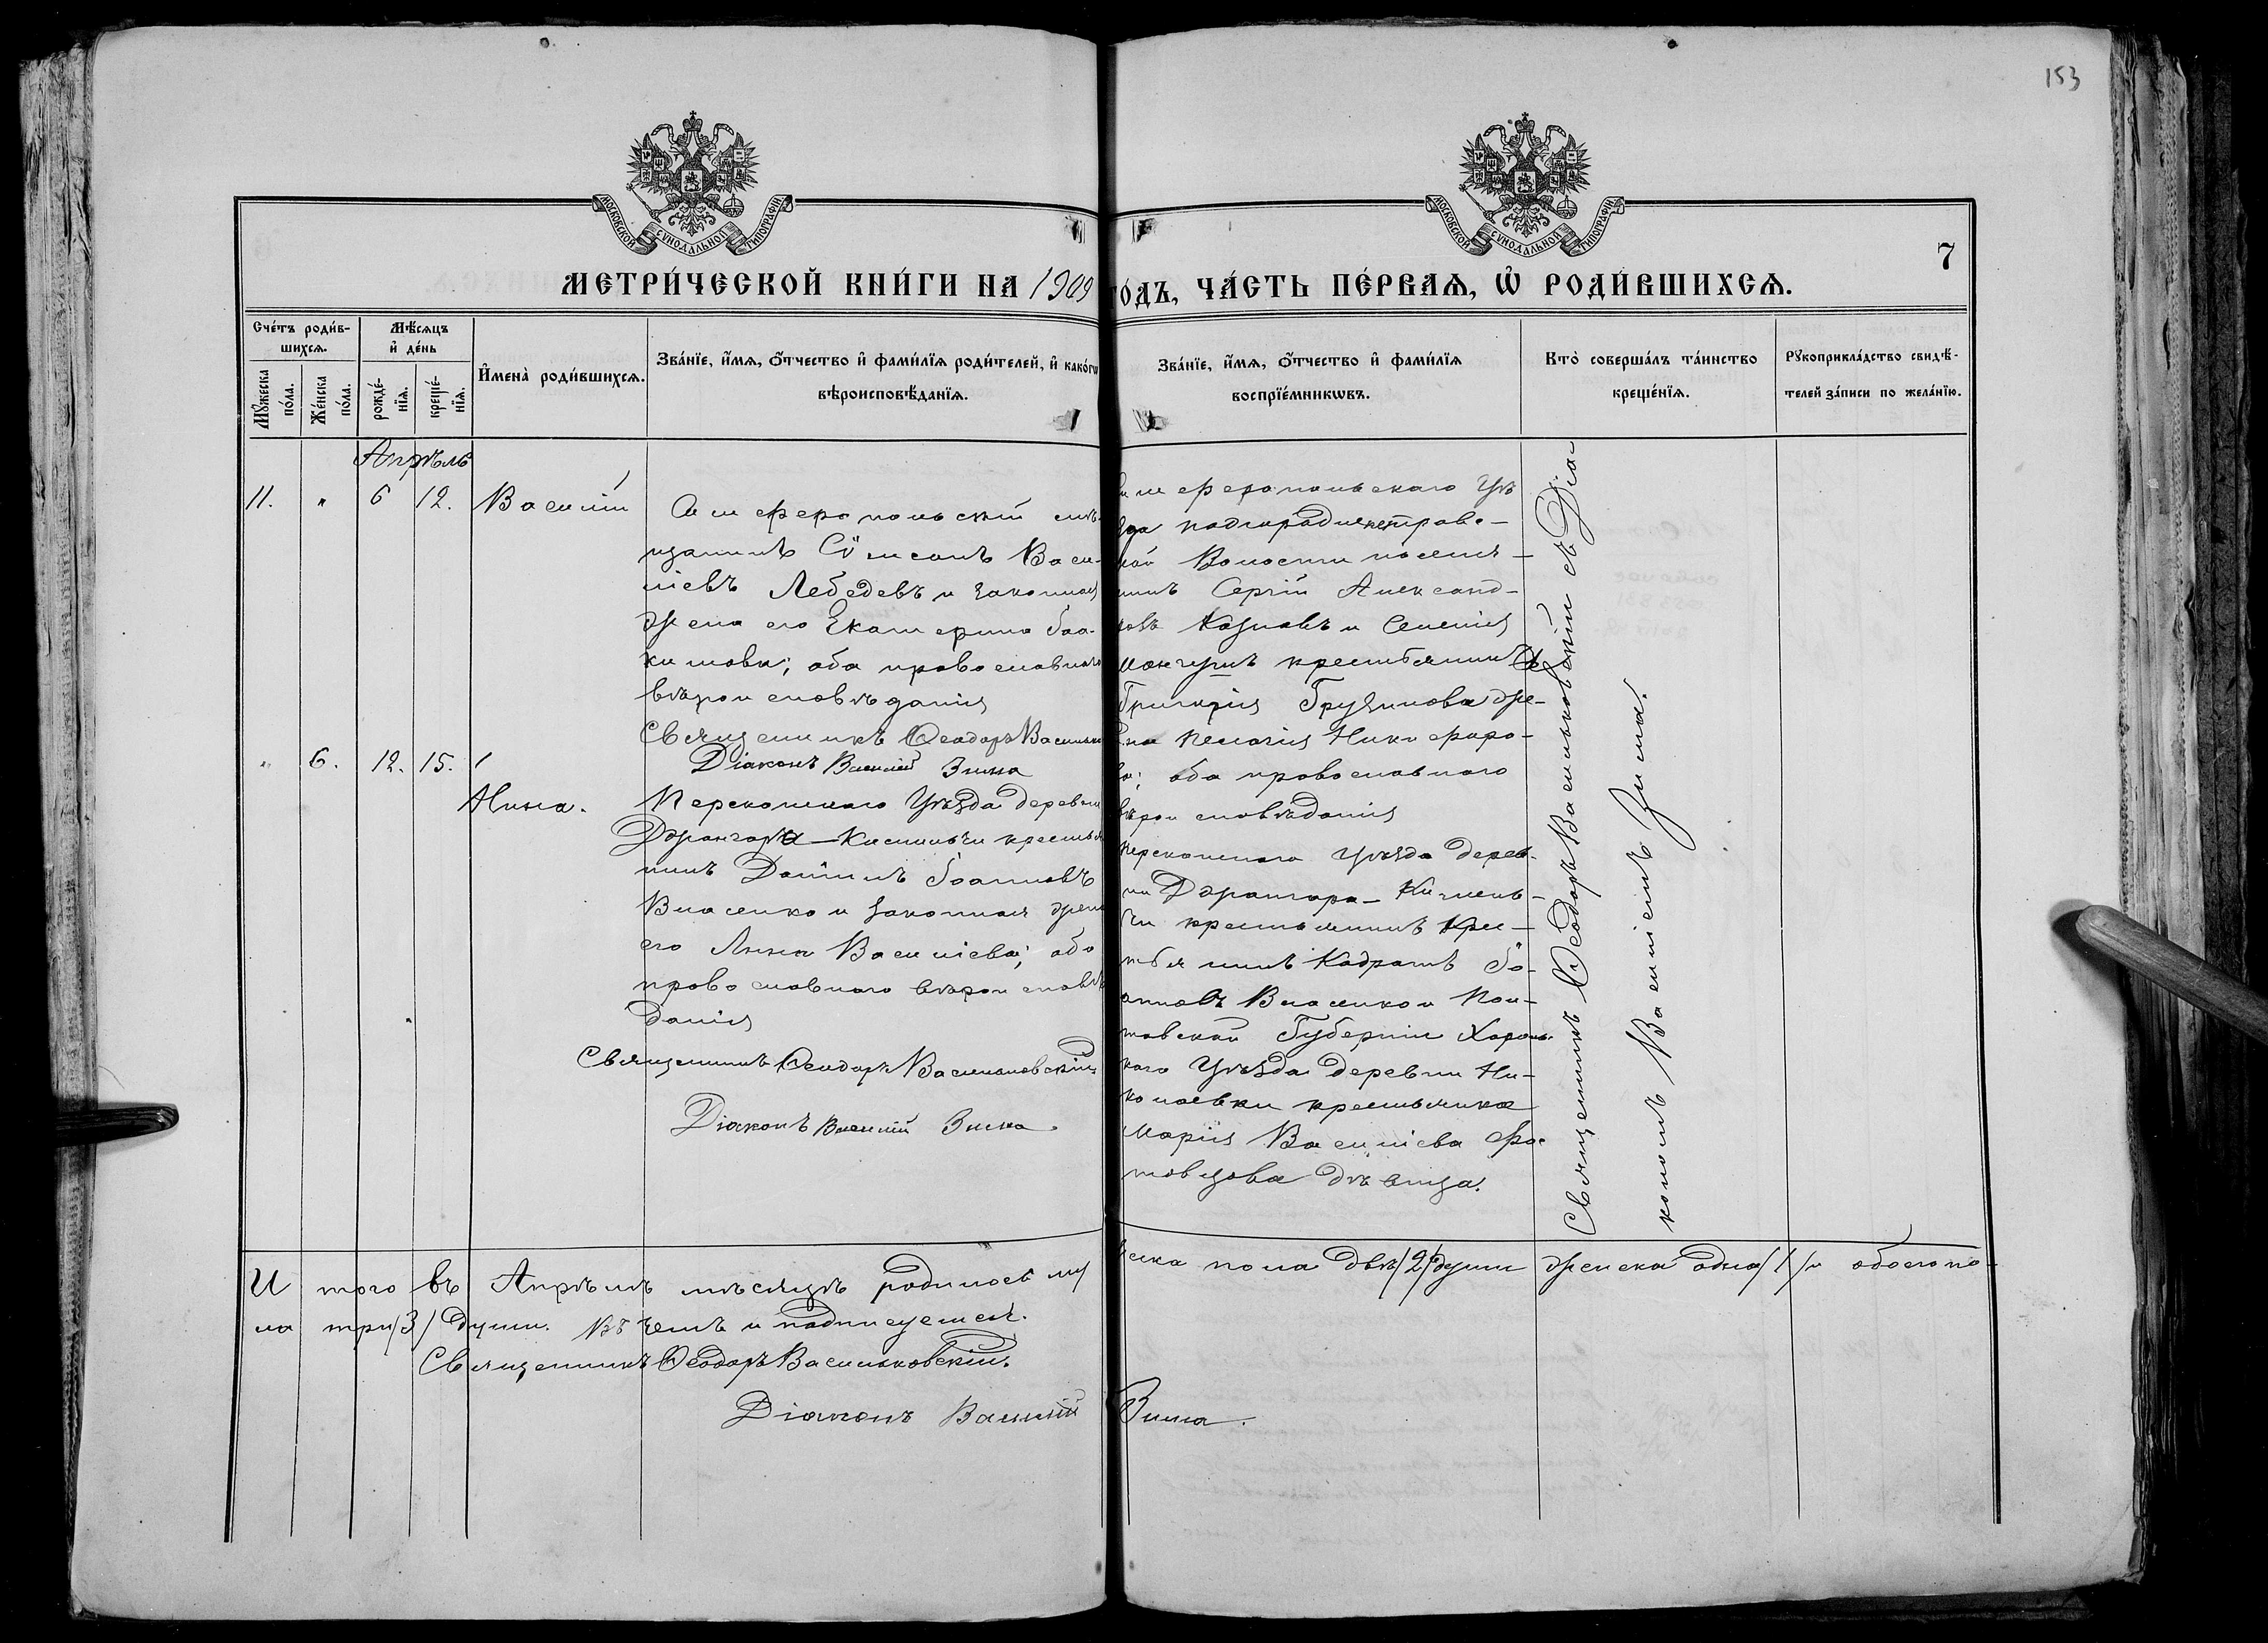 153
МОСКОВСКОЙ СУНОДАЛЬНОЙ ТИПОГРАФІИ
МОСКОВСКОЙ СУНОДАЛЬНОЙ ТИПОГРАФІИ
7
МЕТРИ́ЧЕСКОЙ КНИ́ГИ НА 1909 ГО́ДЪ, ЧА́СТЬ ПЕ́РВАѦ, Ѡ҆ РОДИ́ВШИХСѦ.
Сче́тъ роди́в-
шихсѧ.
Мꙋ́жеска по́ла.
Же́нска по́ла.
Мѣ́сѧцъ
и҆ де́нь
рожде́-нїѧ.
креще́-нїѧ.
И҆мена̀ роди́вшихсѧ.
Зва́нїе, и҆́мѧ, ѻ҆́тчество и҆ фами́лїѧ роди́телей, и҆ како́гѡ
вѣроисповѣ́данїѧ.
Зва́нїе, и҆́мѧ, ѻ҆́тчество и҆ фами́лїѧ
воспрїе́мникѡвъ.
Кто̀ соверша́лъ та́инство
креще́нїѧ.
Рꙋкоприкла́дство свидѣ́-
телей за́писи по жела́нїю.
Апрѣль
11. " 6 12. Василій
Симферопольскій мѣ-
щанинъ Васи-
ліевъ Лебедевъ и законная
жена его Екатерина Іоа-
кимова; оба православнаго
вѣроисповѣданія
Священникъ Ѳеодоръ Васильков
Діаконъ Василій Зима
имферопольскаго Уѣ
зда
ной Волости поселя-
нинъ Сергій Александ-
ровъ и
крестьянина
Григорія Грузинова же-
на Пелагія Никифоро-
ва; оба православнаго
вѣроисповѣданія
" 6. 12. 15. Нина.
Перекопскаго Уѣзда деревни
Джангара-Кисилъчи крестья
нинъ Даніилъ Іоанновъ
Власенко и законная жена
его Анна Василіева; оба
православнаго вѣроисповѣ
данія
Священникъ Ѳеодоръ Васильковскій
Діаконъ Василій Зима.
Перекопскаго Уѣзда дерев-
ни Джангара-
чи крестьянинъ Крес-
тьянинъ Кодратъ Іо-
анновъ Власенко и Пол-
тавской Губерніи Хороль-
каго Уѣзда деревни Ни-
колаевки крестьянка
Марія Василіева
дѣвица.
Священникъ Ѳеодоръ Васильковскій съ Діа-
кономъ Василіемъ Зима.
И того въ Апрѣлѣ мѣсяцѣ родилось му жеска пола двѣ /2/ души женска одна /1/ и обоего по-
ла три /3/ души. Въ чемъ и подписуемся.
Священникъ Ѳеодоръ Васильковскій.
Діаконъ Василій Зима.